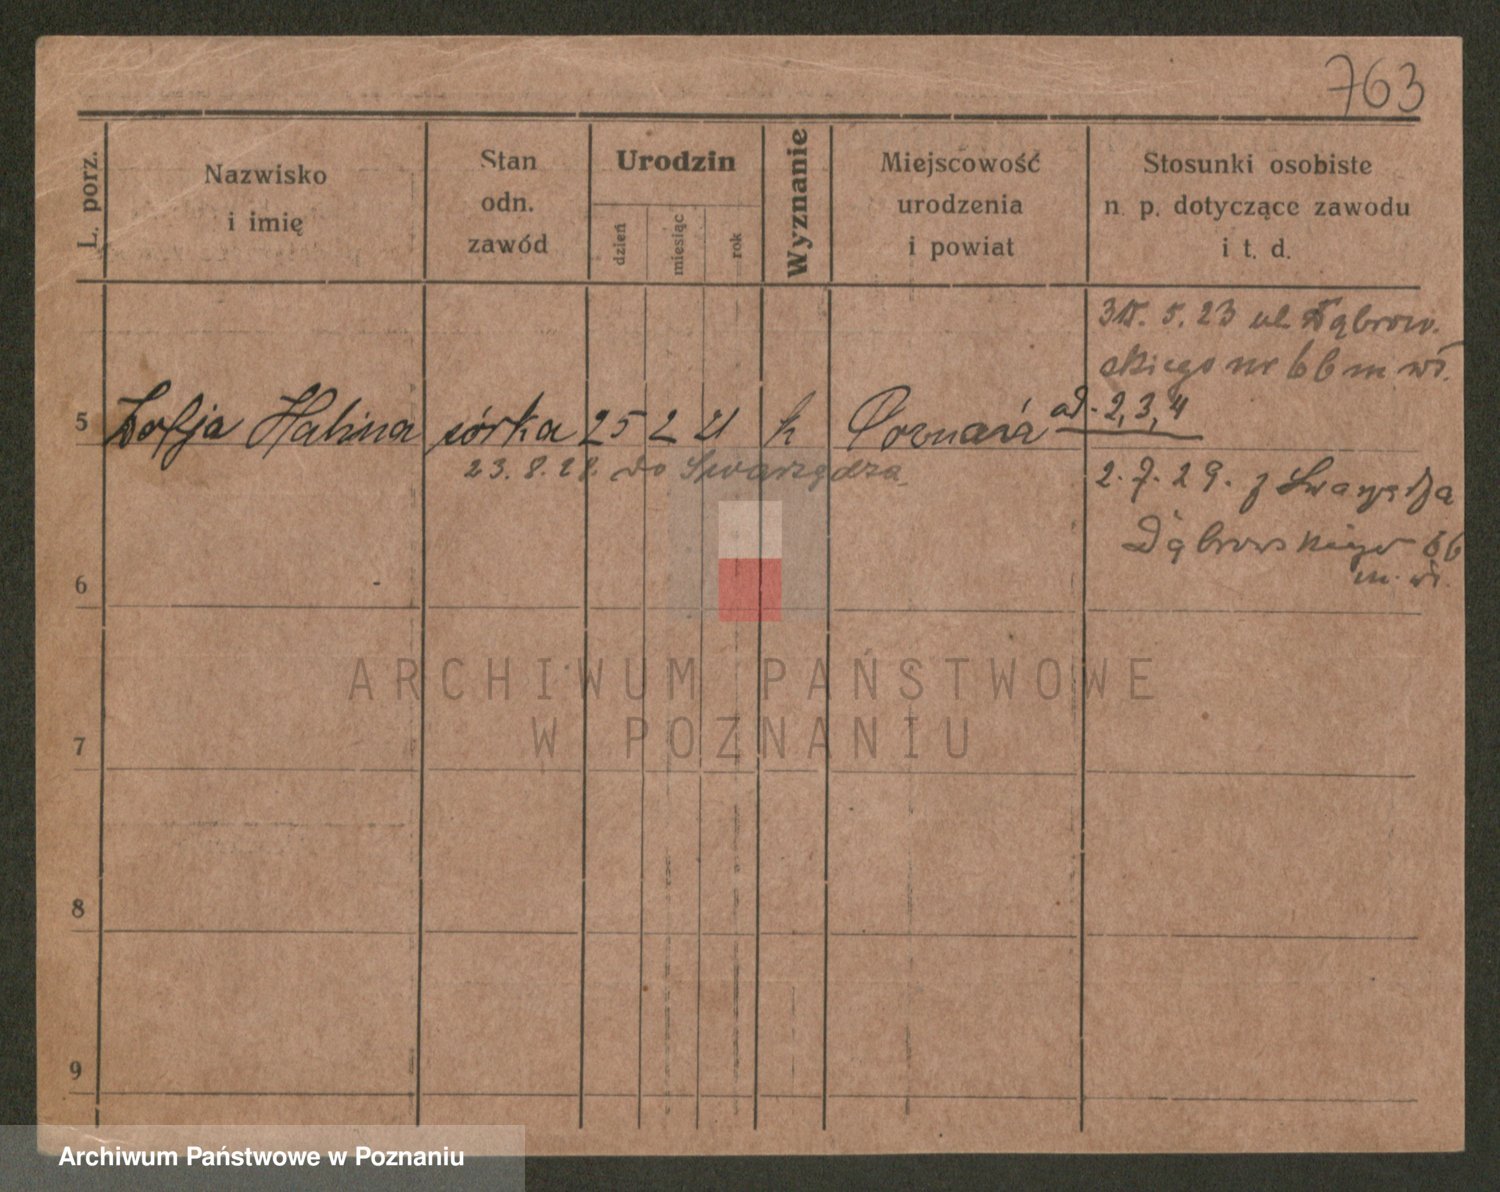 763
L. porz.
Nazwisko
i imię
Stan
odn.
zawód
Urodzin
dzień
miesiąc
rok
Wyznanie
Miejscowość
urodzenia
i powiat
Stosunki osobiste
n. p. dotyczące zawodu
i t. d.
5. 23 ul Dąbrow-
skiego nr 66 m. wł.
5 Zofja Halina córka 25 2 21 k Poznań
ad. 2, 3, 4
23. 8. 28. do Swarzędza
2. 7. 29. z Swarzędza
Dąbrowskiego 66
m. wł.
6
7
8
9
ARCHIWUM PAŃSTWOWE
W POZNANIU
Archiwum Państwowe w Poznaniu